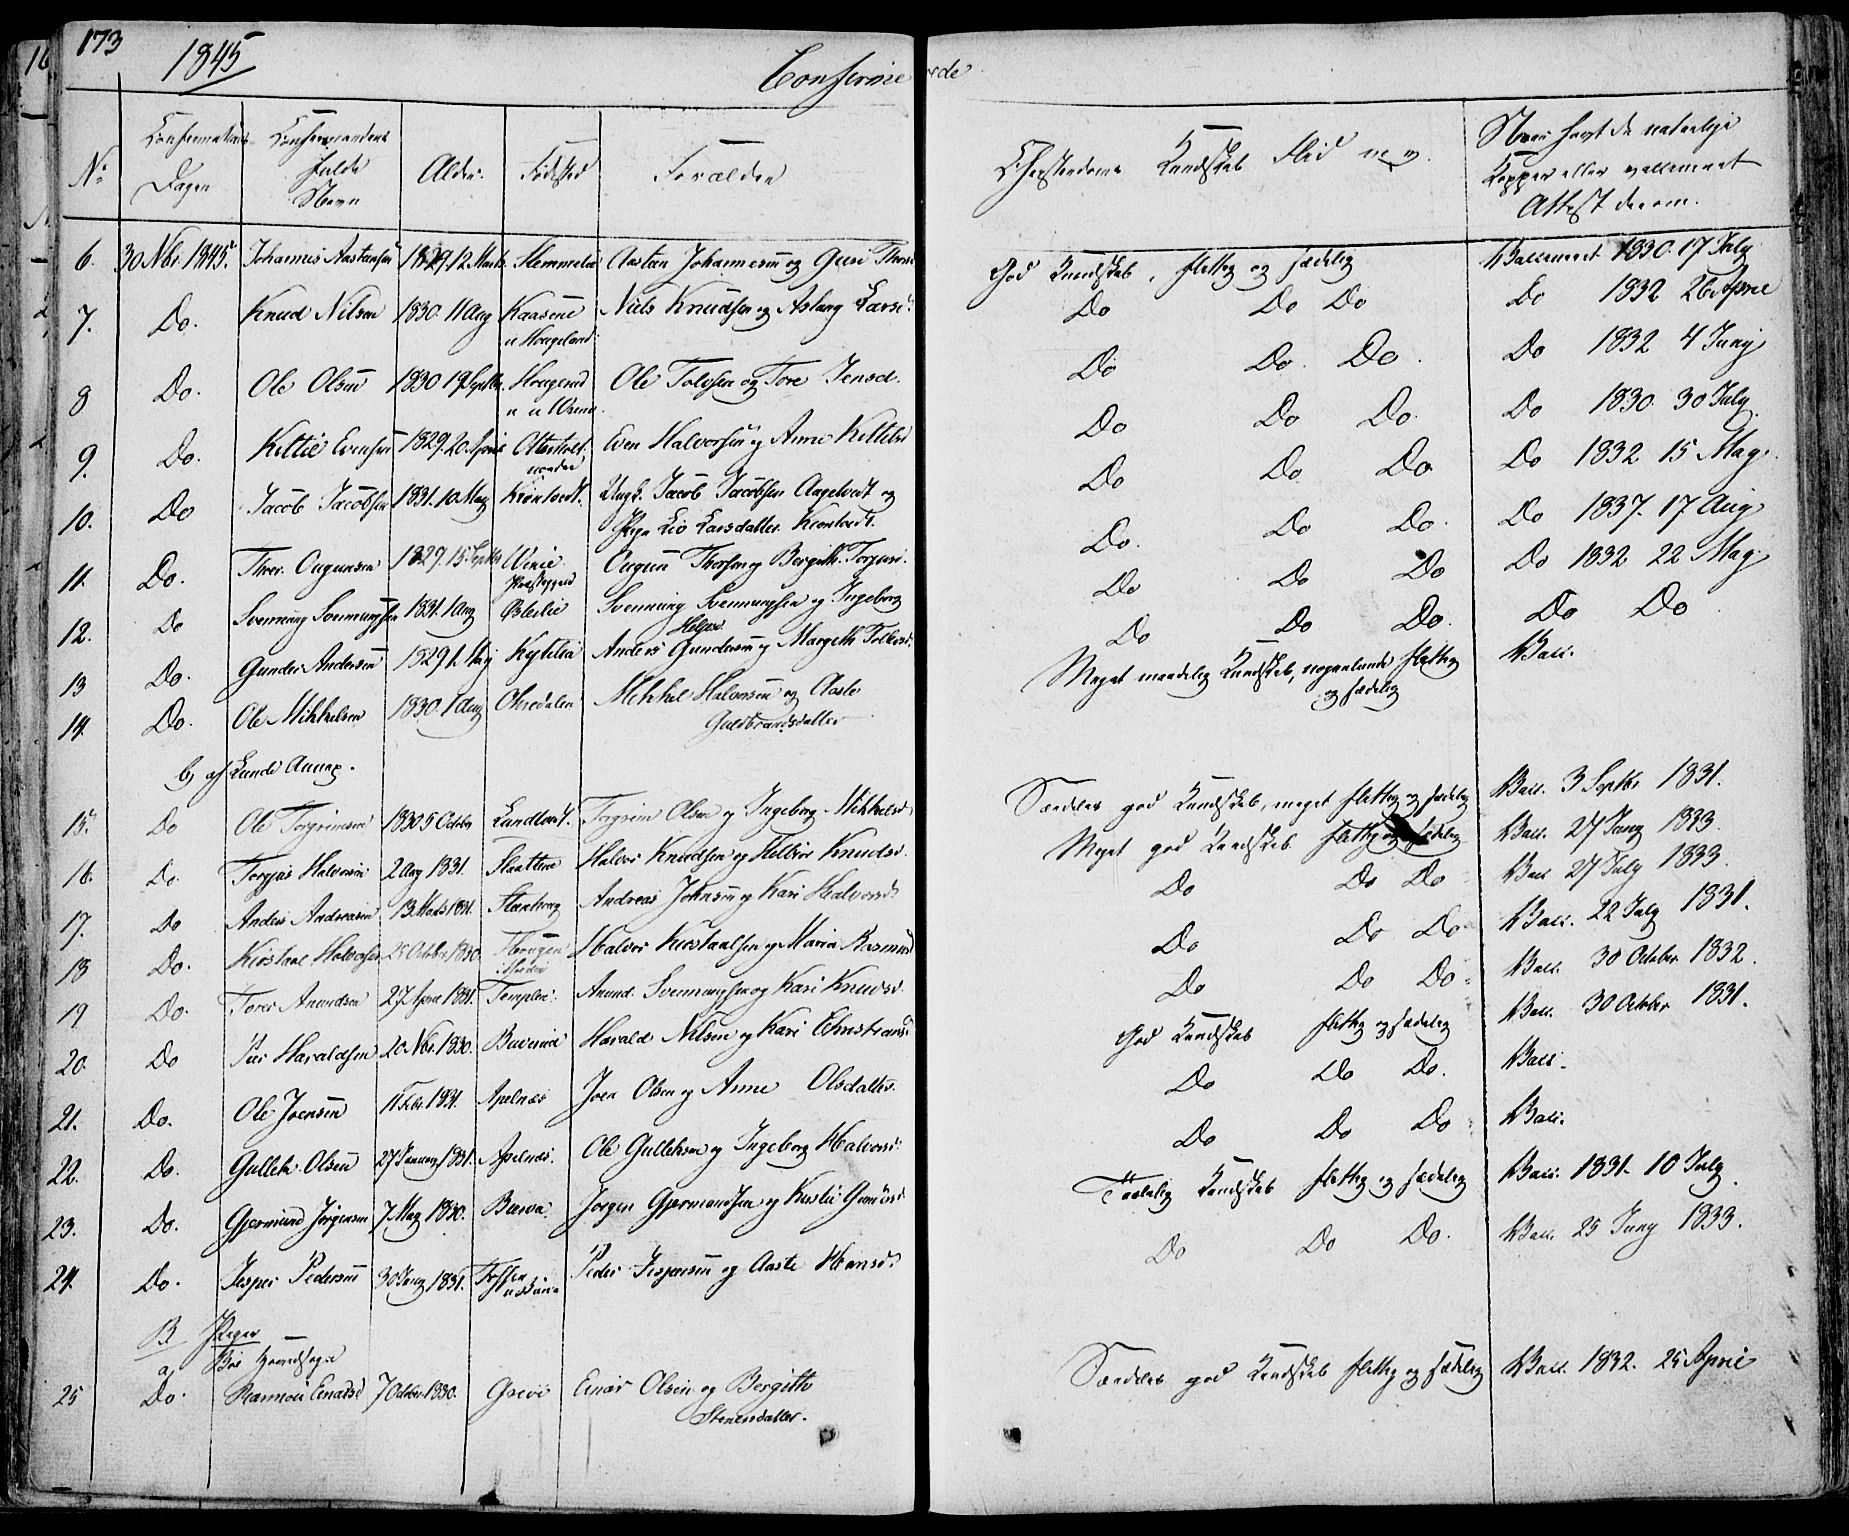 173
1845
Confirme rede
No
Confirmations Dagen
Confirmandens fulde Navn
Alder.
Fødested
Forældre
Christendoms Kundskab Flid m. v.
Naar havt de naturlige Kopper eller vaccineret Attest derom.
6. 30 Nbr. 1845. Johannes Aastansen 1829 12 Marts Aastan Johannesen og Guri God Kundskab, flittig og sædelig Vaccineret 1830. 17 July
7. Do. Knud Nilsen 1830. 11 Aug Kaasene u Haugeland Niels Knudsen og Aslaug Larsd. Do Do Do Do 1832 26 April
8 Do. Ole Olsen 1830 19 Septbr. Ole Tovsen og Tore Jensd. Do Do. Do. Do 1832 4 Juny
9. Do. Kittil Evensen 1829. 20 April nordre Even Halvorsen og Anne Kittilsd Do Do Do. Do 1830. 30 July
10. Do Jacob Jacobsen 1831. 10 May Ungk. Jacob Jacobsen Aagetvedt og Pige Liv Larsdatter Do Do Do Do 1832 15 May.
11. Do. Thor Ougunsen 1829. 15 Septbr Præstegaard Ougun Thorsen og Bergith Do. Do Do. Do 1837. 17 Aug
12. Do Svenning Svenningsen 1831. 1 Aug Østerlie Svenning Svenningsen og Ingeborg Do Do Do Do 1832 22 May
13 Do. Gunder Andersen 1829 1 May Anders Gundersen og Margith Do Do Do. Do Do
14. Do. Ole Mikkelsen 1830. 1 Aug Mikkel Halvorsen og Aaste Guldbrandsdatter Meget maadelig Kundskab, nogenlunde flittig og sædelig Vacc.
b, af Lunde Annex.
15. Do Ole Torgrimsen 1830 5 October Torgrim Olsen og Ingeborg Mikkelsd Særdeles god Kundskab, meget flittig og sædelig Vacc. 3 Septbr 1831.
16. Do. Torjus Halvorsen 2 Aug 1831. Slaattene Halvor Knudsen og Knudsd. Meget god Kundskab flittig og sædelig Vacc. 27 1833.
17. Do Anders Andreasen 13 Marts 1831. Andreas Johnsen og Kari Halvorsd. Do Do Do Vacc 27 July 1833.
18 Do. Kirstaal Halvorsen 25 October 1830. Haugen Halvor Kirstaalsen og Maria Rasmusd Do Do Do Vacc. 22 July 1831.
19 Do. Tore Anundsen 27 April 1831. Templen. Anund Svenningsen og Kari Knudsd. Do Do Do Vacc. 30 October 1832.
20. Do Per Haraldsen 20 Nbr. 1830. Harald Nilsen og Kari God Kundskab flittig og sædelig Vacc. 30 October 1831.
21. Do. Ole Joensen 11 Febr. 1831. Apelnæs Joen Olsen og Anne Olsdatter. Do Do Do. Vacc.
22. Do. Gullek Olsen 27 January 1831. Apelnæs. Ole Gulleksen og Ingeborg Halvorsd. Do Do Do Vacc.
23. Do. Gjermund Jørgensen 7 May 1830. Jørgen Gjermundsen og Kirstie Gundersd Taalelig Kundskab flittig og sædelig Vacc. 1831. 10 July
24. Do. Jesper Pedersen 1831. Peder Jespersen og Aaste Hansd. Do Do Do. Vacc. 25 Juny 1833.
B Piger
a, Bøe Hovedsogn
25 Do. Rannou Einarsd 7 October 1830. Grevi Einar Olsen og Bergitte Stenersdatter. Særdeles god Kundskab flittig og sædelig Vacc. 1832. 25 April